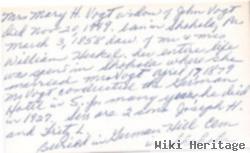 Mrs Mary H. Vogt widow of John Vogt
died Nov. 20, 1949. born in Shohola, Pa.
March 3, 1858 dau of Mr & Mrs
William Heckel. her entire life
was spent in Shohola where she
married Mr Vogt April 17, 1879
Mr Vogt conducted the
Hotel in S. for many years he died
in 1927. Son are 2 sons Joseph H.
and Fritz L.
Buried in German Hill Cem
Wiki Heritage